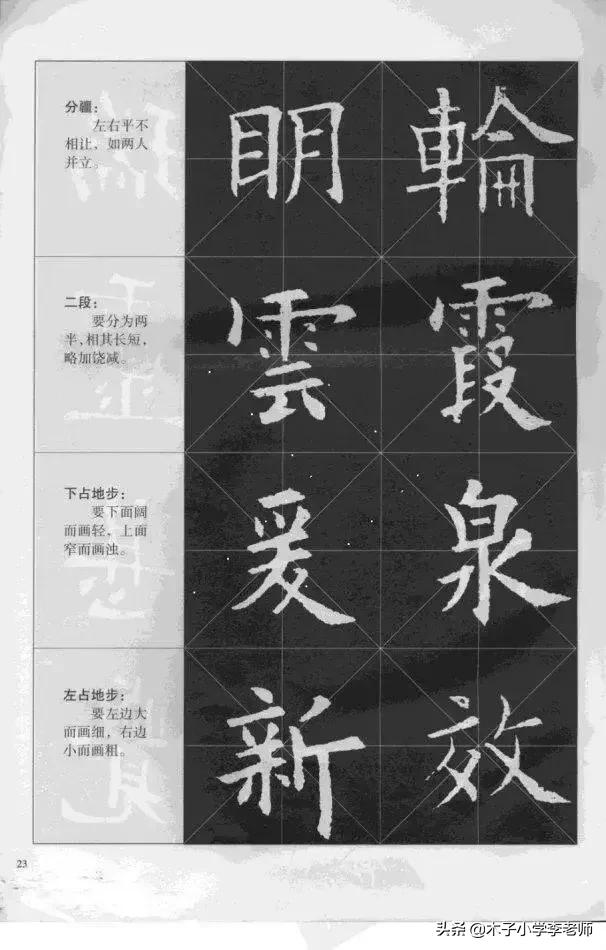 分疆：
左右平不
相让，如两人
并立。
眀 輪
二段：
要分为两
半，相其长短，
略加饶减。
雲 霞
下占地步：
要下面阔
而画轻，上面
窄而画浊。
爰 泉
左占地步：
要左边大
而画细，右边
小而画粗。
新 效
23
头条 @木子小学李老师